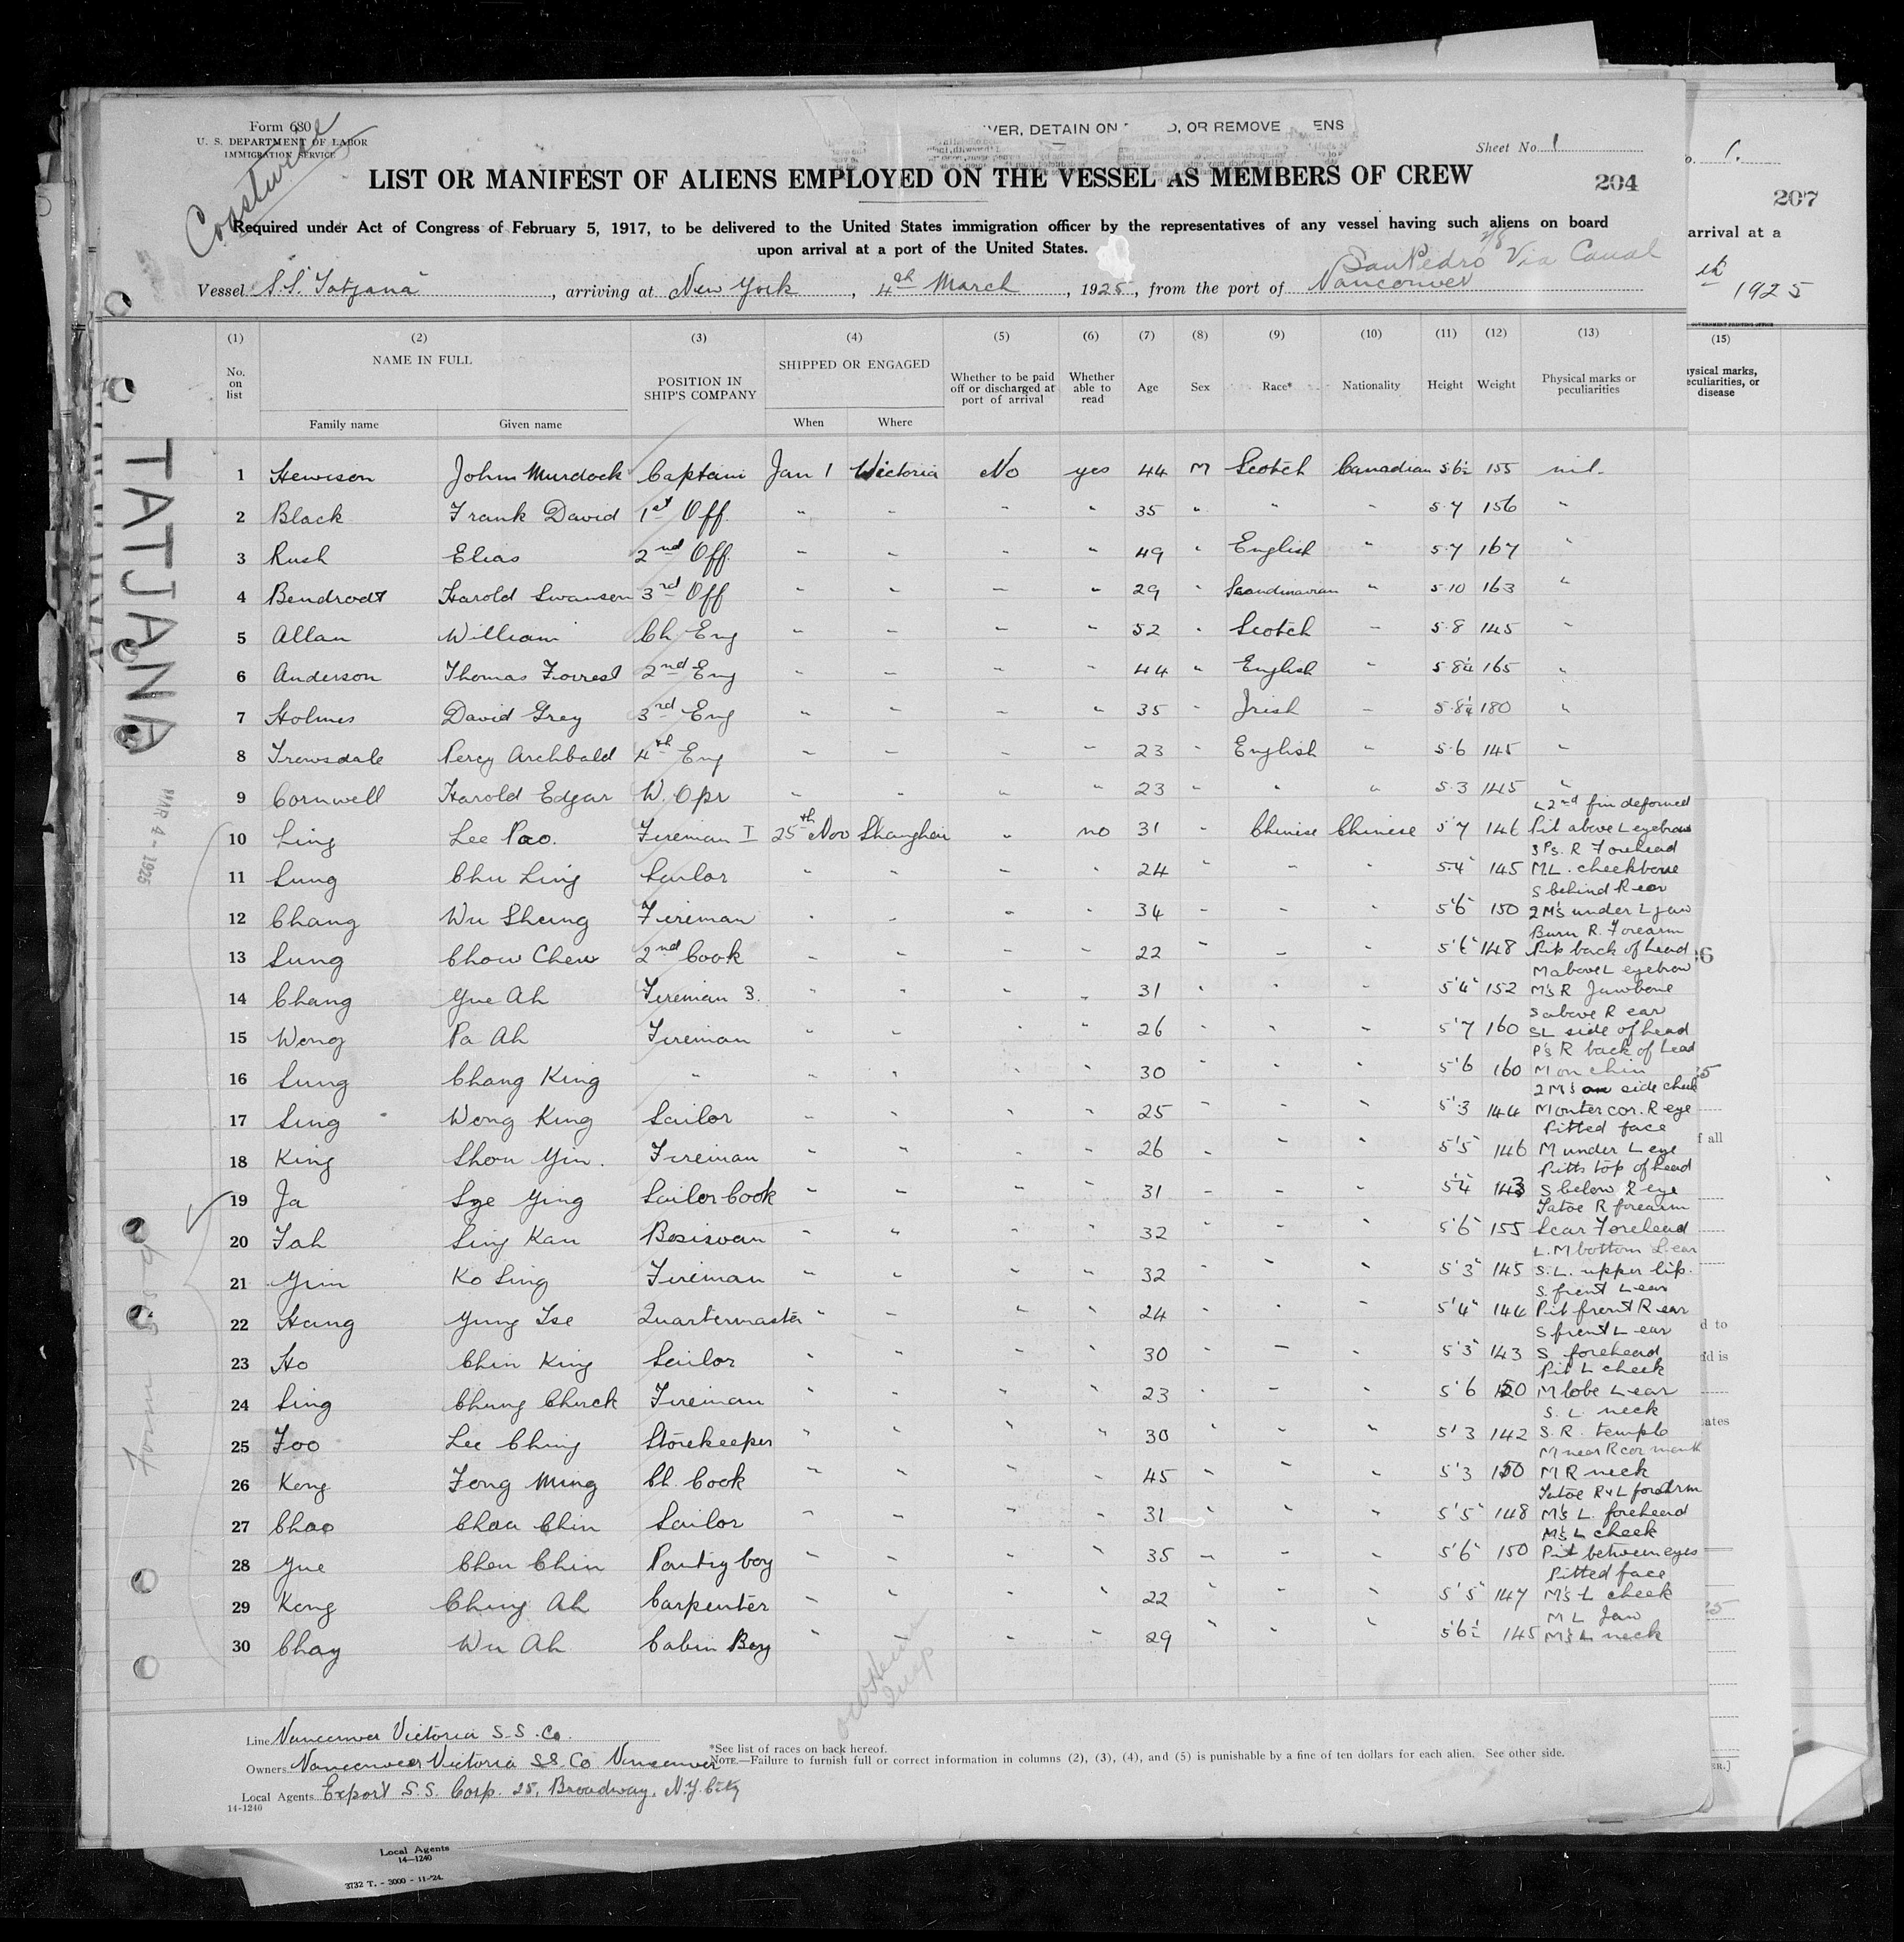 Form 680
U. S. DEPARTMENT OF LABOR
IMMIGRATION SERVICE
Coastwise
VER, DETAIN ON OR REMOVE ENS
Sheet No. 1
LIST OR MANIFEST OF ALIENS EMPLOYED ON THE VESSEL AS MEMBERS OF CREW
204
207
Required under Act of Congress of February 5, 1917, to be delivered to the United States immigration officer by the representatives of any vessel having such aliens on board
upon arrival at a port of the United States.
arrival at a
San Pedro Via Canal
Vessel S.S. Tatjana, arriving at New York, 4th March, 1925, from the port of Vancouver
1925
(1) (2) (3) (4) (5) (6) (7) (8) (9) (10) (11) (12) (13)
(15)
No. on list NAME IN FULL POSITION IN SHIP'S COMPANY SHIPPED OR ENGAGED Whether to be paid off or discharged at port of arrival Whether able to read Age Sex Race* Nationality Height Weight Physical marks or peculiarities
Family name Given name When Where
ysical marks,
eculiarities, or
disease
TATJANA
MAR 4 - 1925
1 Hewison John Murdock Captain Jan 1 Victoria No yes 44 M Scotch Canadian 5 6½ 155 nil.
2 Black Frank David 1st Off " " " " 35 " " " 5.7 156 "
3 Rush Elias 2nd Off. " " " " 49 " English " 5.7 167 "
4 Bendrodt Harold Swanson 3rd Off " " " " 29 " Scandinavian " 5.10 163 "
5 Allan William Ch Eng " " " " 52 " Scotch " 5.8 145 "
6 Anderson Thomas Forrest 2nd Eng " " " " 44 " English " 5.8¼ 165 "
7 Holmes David Grey 3rd Eng " " " " 35 " Irish " 5.8¼ 180 "
8 Trowsdale Percy Archbald 4th Eng " " " " 23 " English " 5.6 145 "
9 Cornwell Harold Edgar W. Opr " " " " 23 " " " 5.3 145 "
L 2nd fin deformed
10 Ling Lee Pao. Fireman I 25th Nov Shanghai " no 31 " Chinese Chinese 5'7 146 Pit above L eyebrow
3 Ps. R Forehead
11 Sung Chu Ling Sailor " " " " 24 " " " 5.4" 145 M L. cheekbone
S behind R ear
12 Chang Wu Sheung Fireman " " " " 34 " " " 5'6" 150 2 M's under L jaw
Burn R. Forearm
13 Sung Chow Chew 2nd Cook " " " " 22 " " " 5'6" 148 Pit back of head
M above L eyebrow
14 Chang Yue Ah Fireman 3. " " " " 31 " " " 5'4" 152 M's R Jawbone
S above R ear
15 Wong Pa Ah Fireman " " " " 26 " " " 5'7 160 S L side of head
P's R back of head
16 Sung Chang King " " " " " 30 " " " 5'6 160 M on chin
2 M's side cheek
17 Sing Wong King Sailor " " " " 25 " " " 5'3 144 M outer cor. R eye
Pitted face
18 King Shou Yin. Fireman " " " " 26 " " " 5'5" 146 M under L eye
Pitts top of head
19 Ja Sze Ying Sailor Cook " " " " 31 " " " 5'4 143 S below R eye
Tatoe R forearm
20 Fah Sing Kau Bosiswan " " " " 32 " " " 5'6" 155 Scar Forehead
L. M bottom L ear
21 Yim Ko Sing Fireman " " " " 32 " " " 5'3" 145 S. L. upper lip.
S front L ear
22 Hang Yung Tse Quartermaster " " " " 24 " " " 5'4" 144 Pit front R ear
S front L ear
23 Ho Chin King Sailor " " " " 30 " " " 5'3" 143 S forehead
Pit L cheek
24 Sing Chung Chuck Fireman " " " " 23 " " " 5'6 150 M lobe L ear
S. L. neck
25 Foo Lee Ching Storekeeper " " " " 30 " " " 5'3 142 S. R. temple
M near R cor mouth
26 Kong Fong Ming Ch. Cook " " " " 45 " " " 5'3 150 M R neck
Tatoe R & L forearm
27 Chao Chau Chin Sailor " " " " 31 " " " 5'5" 148 M's L. forehead
M's L cheek
28 Yue Chen Chin Pantry boy " " " " 35 " " " 5'6" 150 Pit between eyes
Pitted face
29 Kong Ching Ah Carpenter " " " " 22 " " " 5'5" 147 M's L cheek
M L Jaw
30 Chay Wu Ah Cabin Boy " " " " 29 " " " 5'6½ 145 M's L neck
Line Vancouver Victoria S.S. Co.
Owners Vancouver Victoria SS. Co Vancouver
Local Agents Export S.S. Corp. 25, Broadway, N.Y. City
14-1240
*See list of races on back hereof.
NOTE.—Failure to furnish full or correct information in columns (2), (3), (4), and (5) is punishable by a fine of ten dollars for each alien. See other side.
Local Agents
14—1240
3732 T. - 3000 - 11-'24.